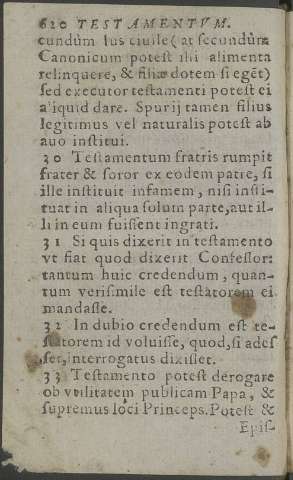 620 TESTAMENTVM.
cundùm Ius ciuile (at secundùm
Canonicum potest illi alimenta
relinquere, & filiæ dotem si egēt)
sed executor testamenti potest ei
aliquid dare. Spurij tamen filius
legitimus vel naturalis potest ab
auo institui.
30 Testamentum fratris rumpit
frater & soror ex eodem patre, si
ille instituit infamem, nisi insti-
tuat in aliqua solùm parte, aut il-
li in eum fuissent ingrati.
31 Si quis dixerit in testamento
vt fiat quod dixerit Confessor:
tantum huic credendum, quan-
tum veris.mile est testatorem ei
mandasse.
32 In dubio credendum est te-
statorem id voluisse, quod, si ades
set, interrogatus dixisset.
33 Testamento potest derogare
ob vtilitatem publicam Papa, &
supremus loci Princeps. Potest &
Epis-